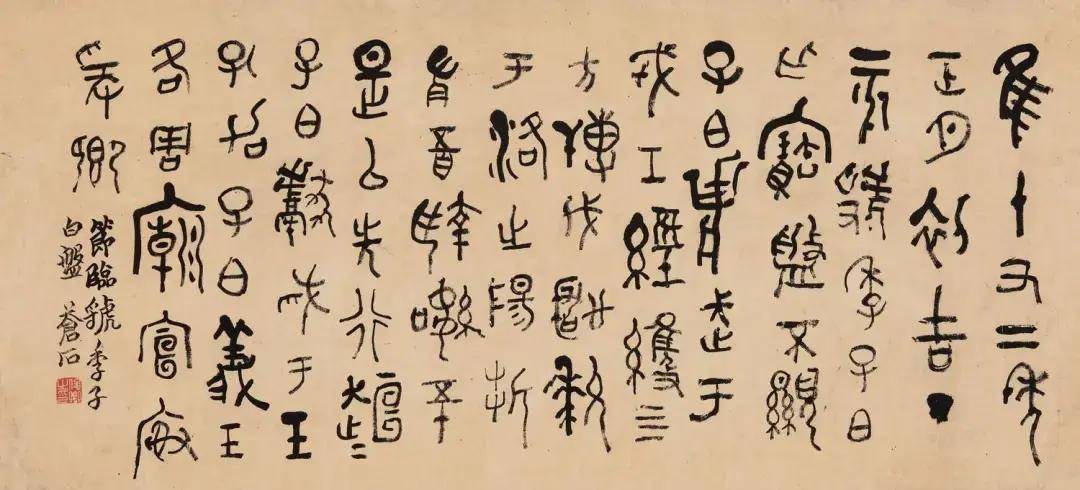 隹十又二年
正月初吉丁
亥虢季子白
乍寶盤不顯
子白壯武于
戎工經維四
方搏伐玁狁
于洛之陽折
首五百執訊五十
是以先行桓桓
子白獻馘于王
孔加子白義王
各周廟宣榭
爰鄉
節臨虢季子
白盤 蒼石